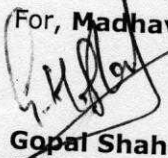 For, Madhav
Gopal Shah